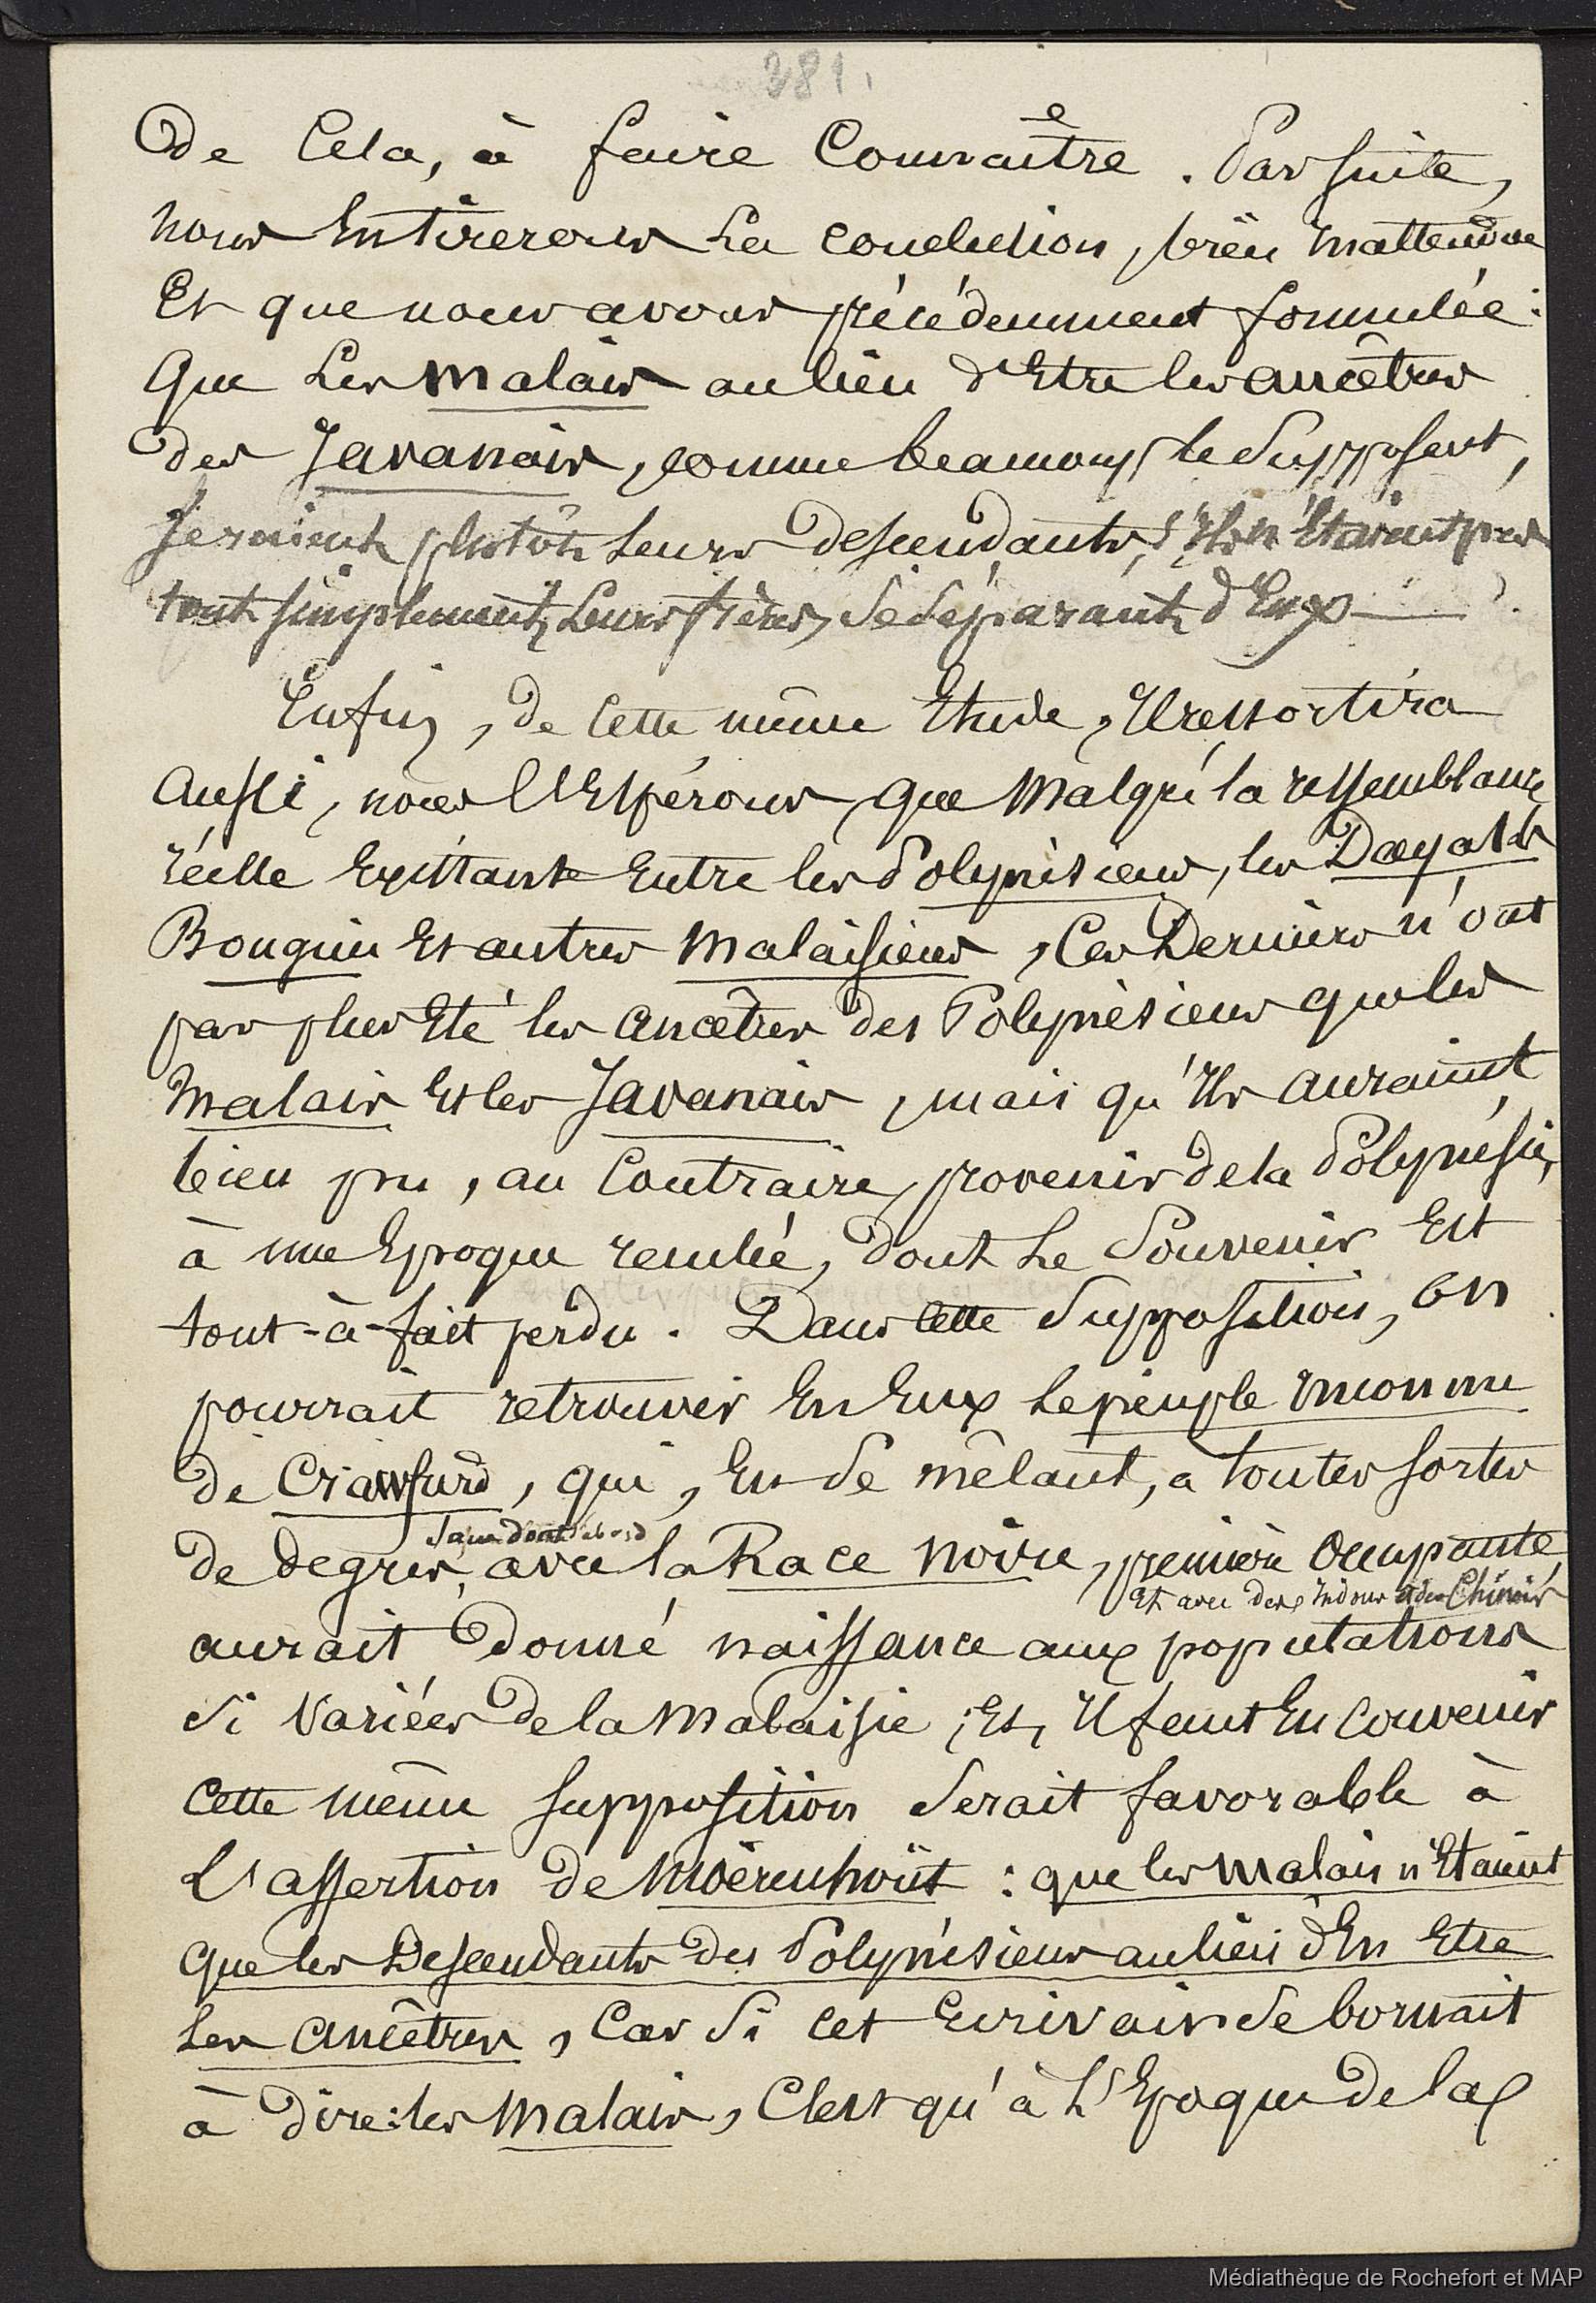 281.
De Cela, à faire Connaitre. Par suite,
nous En tirerons La conclusion, bien inattendue
Et que nous avons précédemment formulée:
Que Les Malais au lieu d'Etre les ancêtres
des Javanais, comme beaucoup le Supposent,
seraient plutôt Leurs descendants, s'Ils n'Etaient pas
tout simplement, Leurs frères, se séparant d'Eux
Enfin, de Cette même Etude, Il ressortira
aussi, nous l'Espérons, que Malgré la ressemblance
réelle Existant Entre les Polynésiens, les Dayaks
Bouguin Et autres Malaisiens, Ces Derniers n'ont
pas plus Eté les ancêtres des Polynésiens que les
Malais Et les Javanais, mais qu'Ils auraient,
bien pu, au Contraire, provenir de la Polynésie,
à une Epoque reculée, dont Le Souvenir Est
tout-à-fait perdu. Dans cette Supposition, on
pourrait retrouver En Eux Le peuple inconnu
de Crawfurd, qui, En Se mêlant, à toutes sortes
Sans doute d'abord
de degrés, avec la Race noire, première Occupante,
Et avec des Indous et des Chinois
aurait Donné naissance aux populations
Si Variées de la Malaisie; Et, Il faut En Convenir
Cette même supposition Serait favorable à
L'assertion de Moërenhoüt: que les Malais n'Etaient
que les Descendants des Polynésiens au lieu d'En Etre
Les Ancêtres, Car Si cet Ecrivain Se bornait
à dire: les Malais, C'est qu'à L'Epoque de la
Médiathèque de Rochefort et MAP